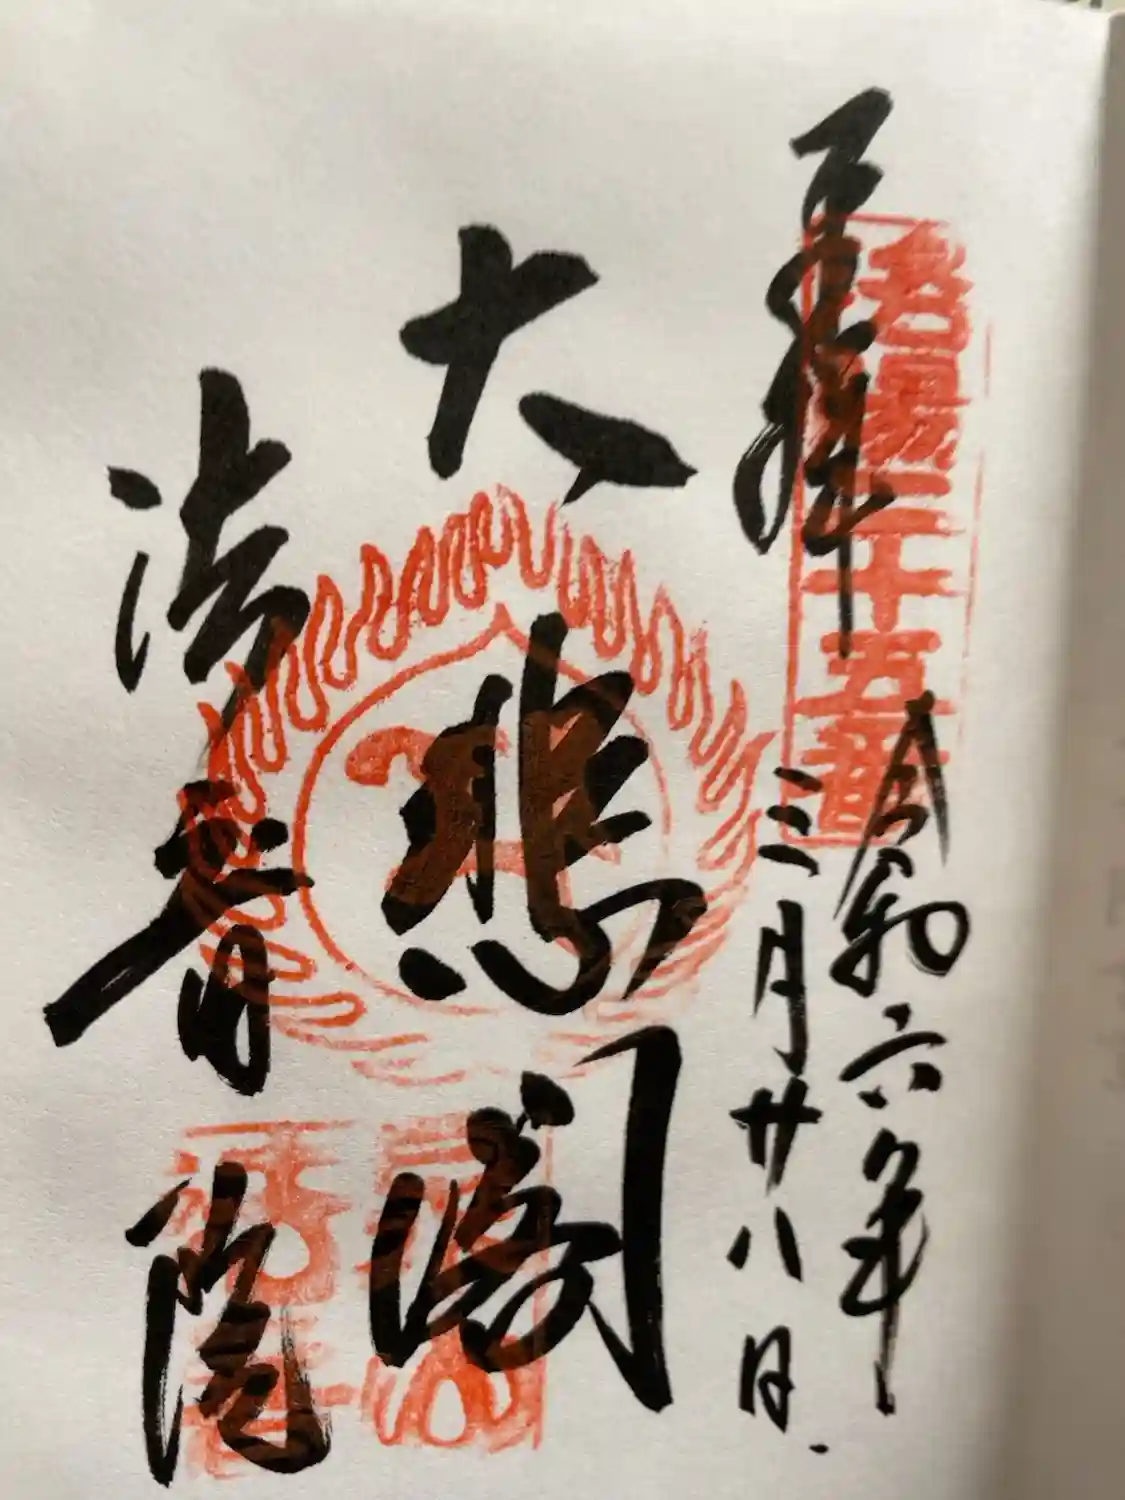 奉拝
洛陽二十五番
令和六年
三月廿八日
大悲閣
法音院